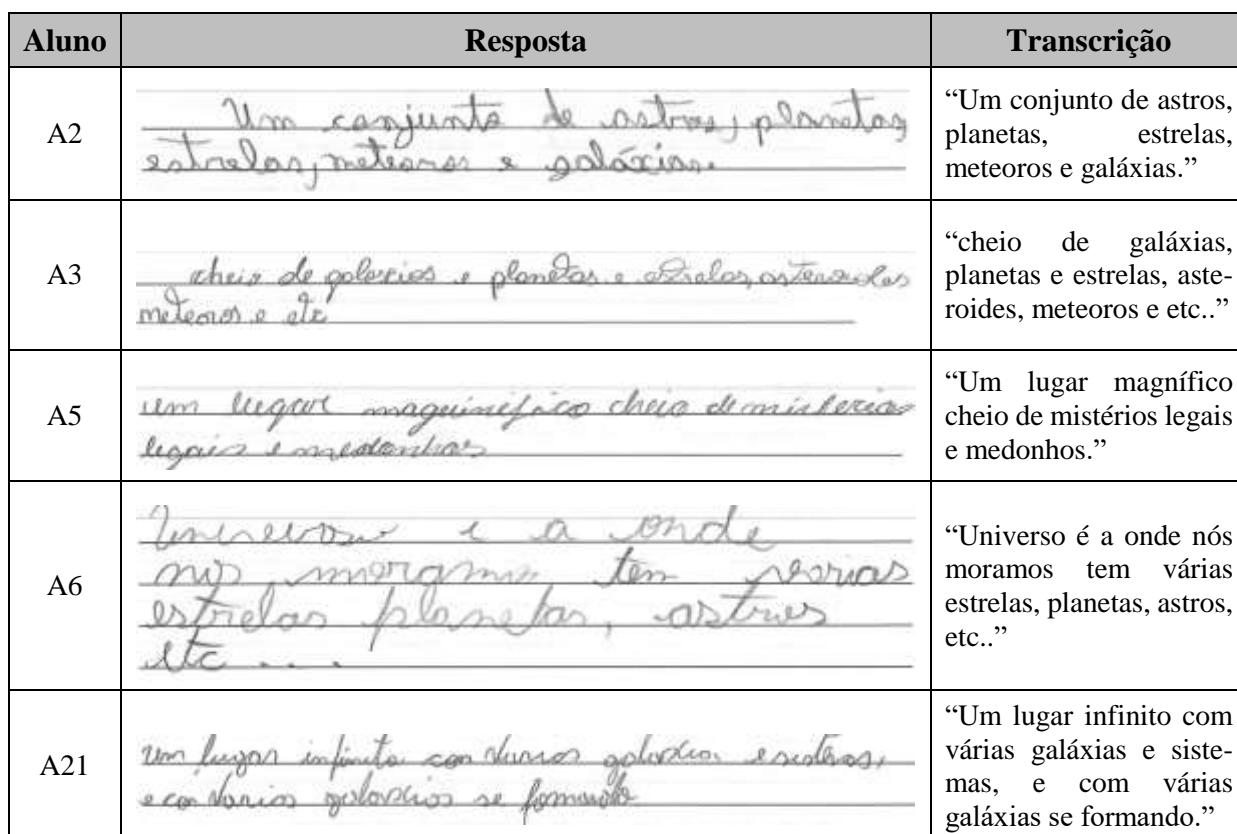 Aluno Resposta Transcrição
A2
Um conjunto de astros, planetas,
estrelas, meteoros e galáxias.
“Um conjunto de astros,
planetas, estrelas,
meteoros e galáxias.”
A3
cheio de galaxias e planetas e estrelas, asteroides
meteoros e etc
“cheio de galáxias,
planetas e estrelas, aste-
roides, meteoros e etc..”
A5
um lugar maguinifico cheio de misterios
legais e medonhos
“Um lugar magnífico
cheio de mistérios legais
e medonhos.”
A6
e a onde
nos moramos tem varias
estrelas planetas, astros
etc ....
“Universo é a onde nós
moramos tem várias
estrelas, planetas, astros,
etc..”
A21
um lugar infinito con varias galaxias e sistemas,
e con varias galaxias se formando
“Um lugar infinito com
várias galáxias e siste-
mas, e com várias
galáxias se formando.”